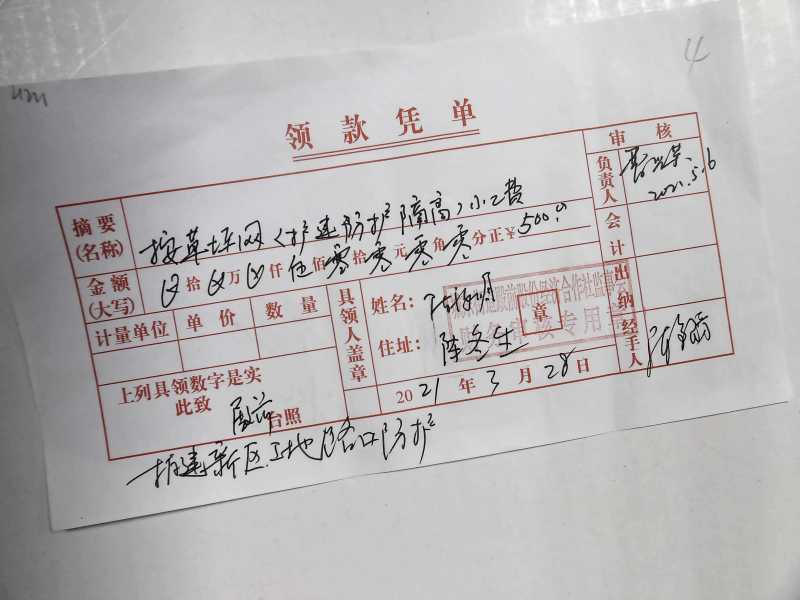 4
领款凭单
审核
摘要
(名称)
按草坪网（护建防护隔高）小工费
负责人
2021.5.6
金额
(大写)
拾 万 仟 伍 佰 零 拾 零 元 零 角 零 分正￥500.0
会计
计量单位 单价 数量
具领人盖章
姓名：
住址：
股份经济合作社监事会
审核专用章
章
出纳
上列具领数字是实
此致
台照
2021年3月28日
经手人
新区工地路口防护